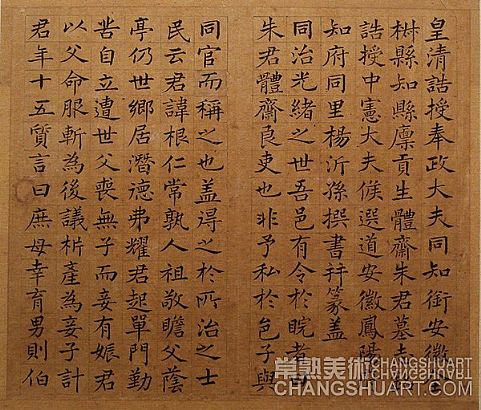 皇清誥授奉政大夫同知銜安徽
樹縣知縣廩貢生體齋朱君墓志
誥授中憲大夫候選道安徽鳳陽
知府同里楊沂孫撰書并篆蓋
同治光緒之世吾邑有令於皖者
朱君體齋良吏也非予私於邑子與
同官而稱之也盖得之於所治之士
民云君諱根仁常孰人祖敬瞻父蔭
亭仍世鄉居潛德弗耀君起單門勤
苦自立遭世父喪無子而妾有娠君
以父命服斬為後議析產為妾子計
君年十五質言曰庶母幸育男則伯
常熟美術 CHANGSHUART
CHANGSHUART.COM